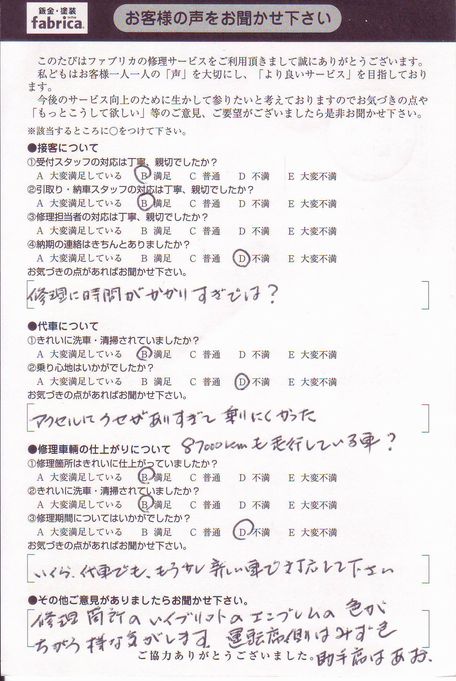 鈑金・塗装
fabrica.
お客様の声をお聞かせ下さい
このたびはファブリカの修理サービスをご利用頂きまして誠にありがとうございます。
私どもはお客様一人一人の「声」を大切にし、「より良いサービス」を目指しており
ます。
今後のサービス向上のために生かして参りたいと考えておりますのでお気づきの点や
「もっとこうして欲しい」等のご意見、ご要望がございましたら是非お聞かせ下さい。
※該当するところに○をつけて下さい。
●接客について
①受付スタッフの対応は丁寧、親切でしたか？
A 大変満足している B 満足 C 普通 D 不満 E 大変不満
②引取り・納車スタッフの対応は丁寧、親切でしたか？
A 大変満足している B 満足 C 普通 D 不満 E 大変不満
③修理担当者の対応は丁寧、親切でしたか？
A 大変満足している B 満足 C 普通 D 不満 E 大変不満
④納期の連絡はきちんとありましたか？
A 大変満足している B 満足 C 普通 D 不満 E 大変不満
お気づきの点があればお聞かせ下さい。
修理に時間がかかりすぎでは？
●代車について
①きれいに洗車・清掃されていましたか？
A 大変満足している B 満足 C 普通 D 不満 E 大変不満
②乗り心地はいかがでしたか？
A 大変満足している B 満足 C 普通 D 不満 E 大変不満
お気づきの点があればお聞かせ下さい。
アクセルにクセがありすぎて乗りにくかった
87000kmも走行している車？
●修理車輌の仕上がりについて
①修理箇所はきれいに仕上がっていましたか？
A 大変満足している B 満足 C 普通 D 不満 E 大変不満
②きれいに洗車・清掃されていましたか？
A 大変満足している B 満足 C 普通 D 不満 E 大変不満
③修理期間についてはいかがでしたか？
A 大変満足している B 満足 C 普通 D 不満 E 大変不満
お気づきの点があればお聞かせ下さい。
いくら、代車でも、もう少し新しい車で対応して下さい
●その他ご意見がありましたらお聞かせ下さい。
修理箇所のハイブリットのエンブレムの色が
ちがう様な気がします。運転席側はみずき
ご協力ありがとうございました。
助手席はあお。